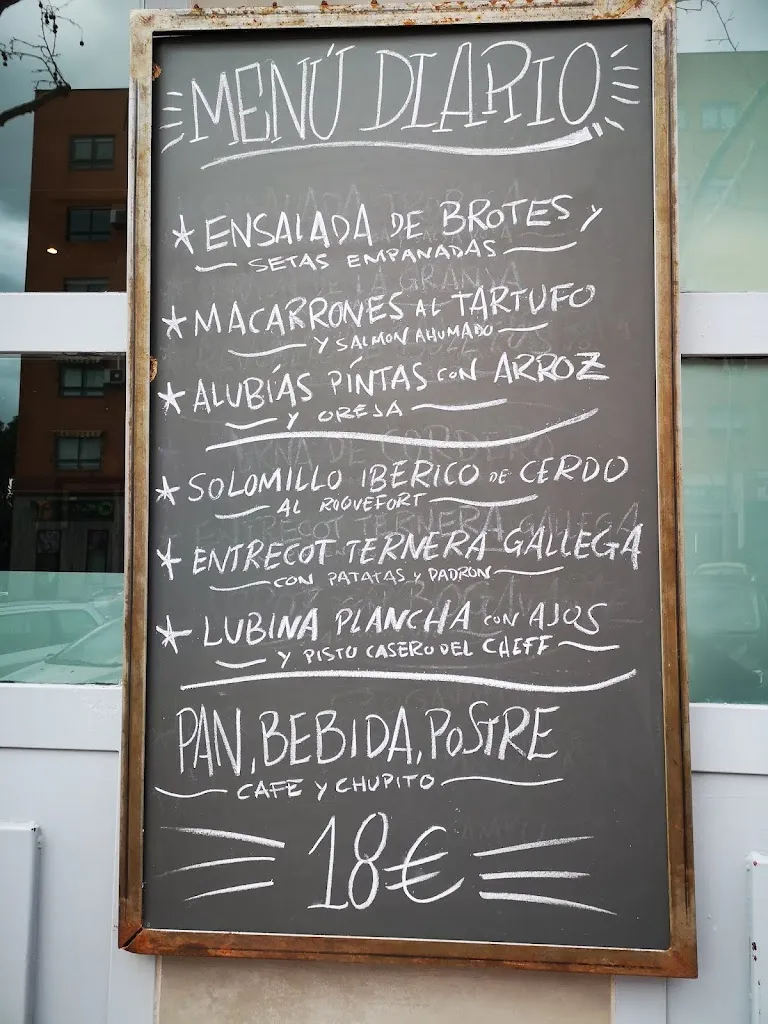 MENÚ DIARIO
* ENSALADA DE BROTES y
SETAS EMPANADAS
* MACARRONES AL TARTUFO
Y SALMON AHUMADO
* ALUBÍAS PÍNTAS CON ARROZ
Y OREJA
* SOLOMILLO IBERICO DE CERDO
AL ROQUEFORT
* ENTRECOT TERNERA GALLEGA
CON PATATAS Y PADRON
* LUBINA PLANCHA CON AJOS
Y PISTO CASERO DEL CHEFF
PAN, BEBIDA, POSTRE
CAFE Y CHUPITO
18€